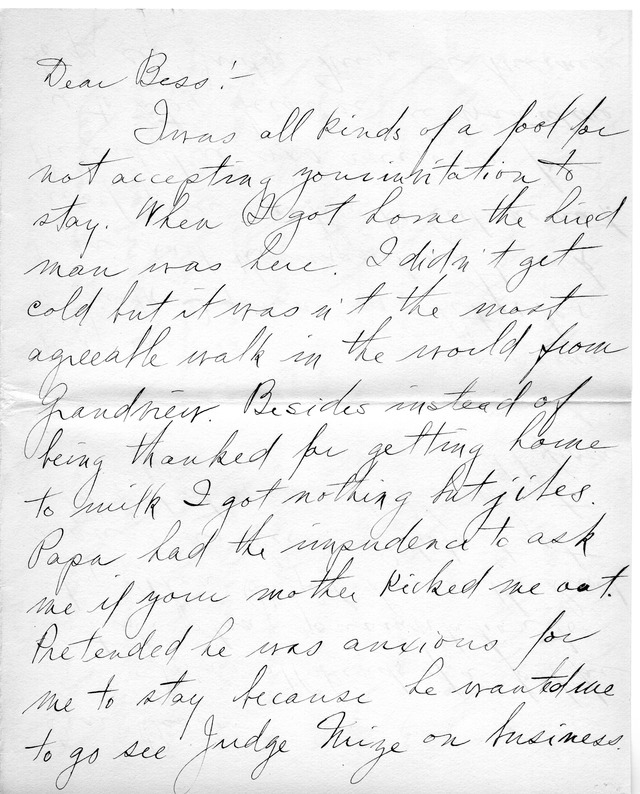 Dear Bess:-
I was all kinds of a fool for
not accepting your invitation to
stay. When I got home the hired
man was here. I didn't get
cold but it was n't the most
agreeable walk in the world from
Grandview. Besides instead of
being thanked for getting home
to milk I got nothing but jibes.
Papa had the impudence to ask
me if your mother kicked me out.
Pretended he was anxious for
me to stay because he wanted me
to go see Judge Mize on business.